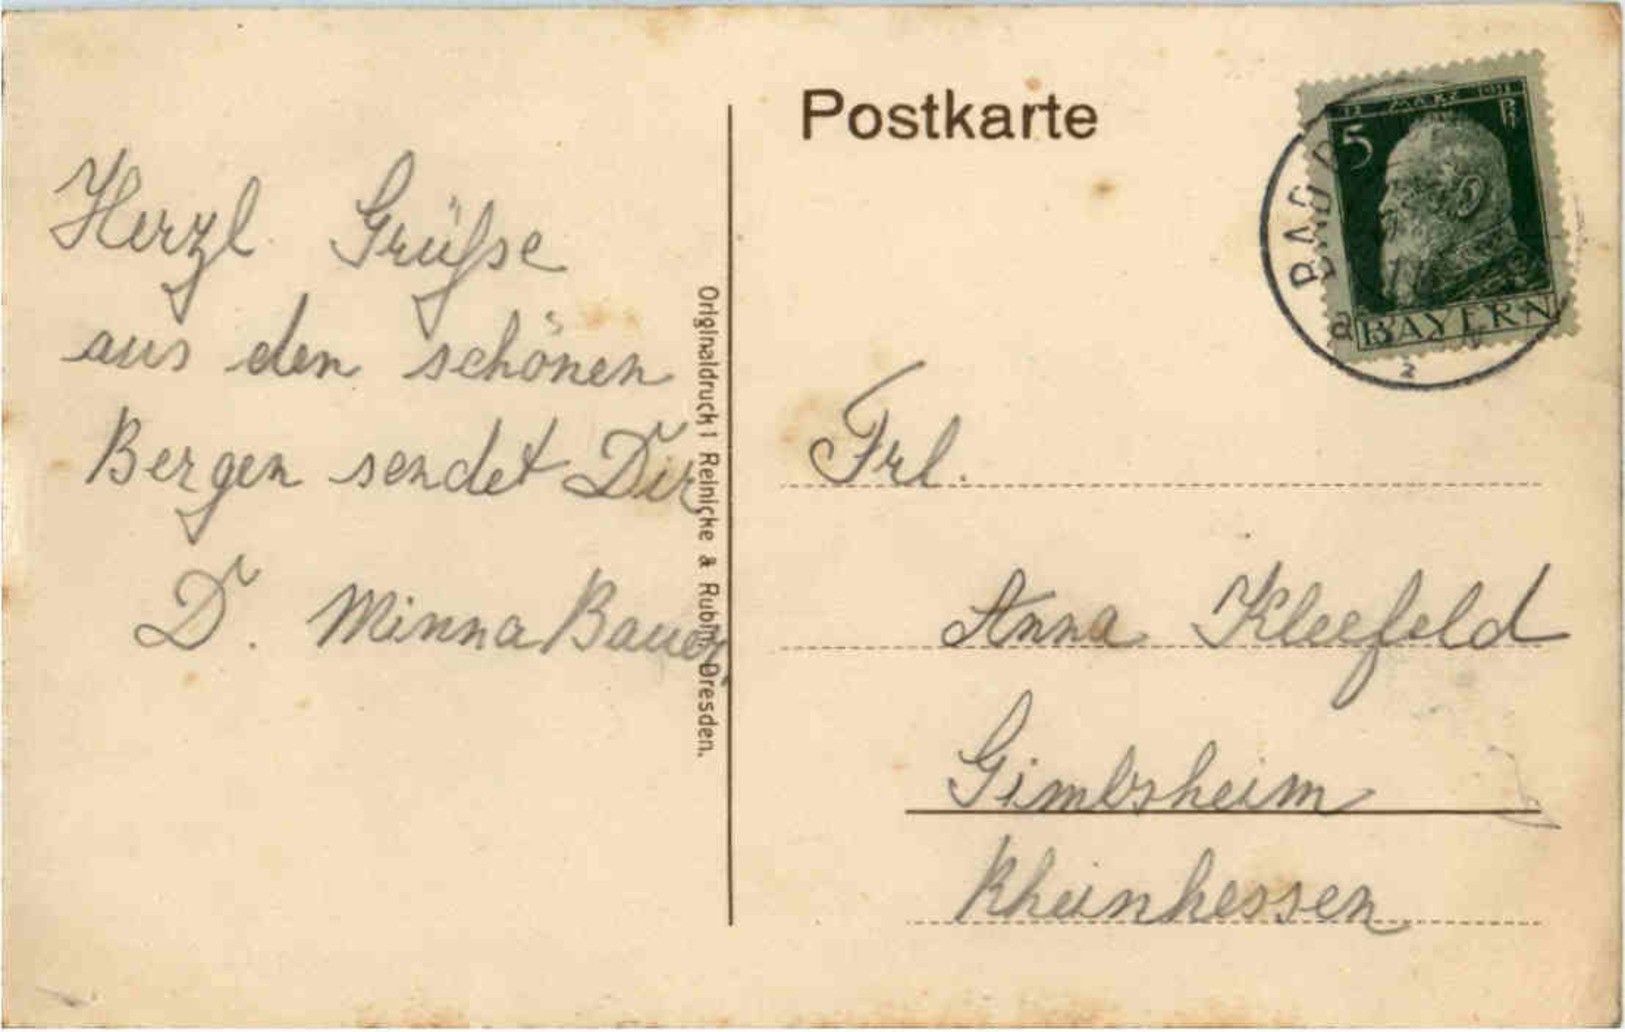 Herzl Grüße
aus den schönen
Bergen sendet Dir
D. Minna Bauer
Originaldruck: Reinicke & Rubin, Dresden.
Postkarte
12 MÄRZ 1911
5 Pf
BAYERN
2
Frl.
Anna Kleefeld
Gimbsheim
Rheinhessen